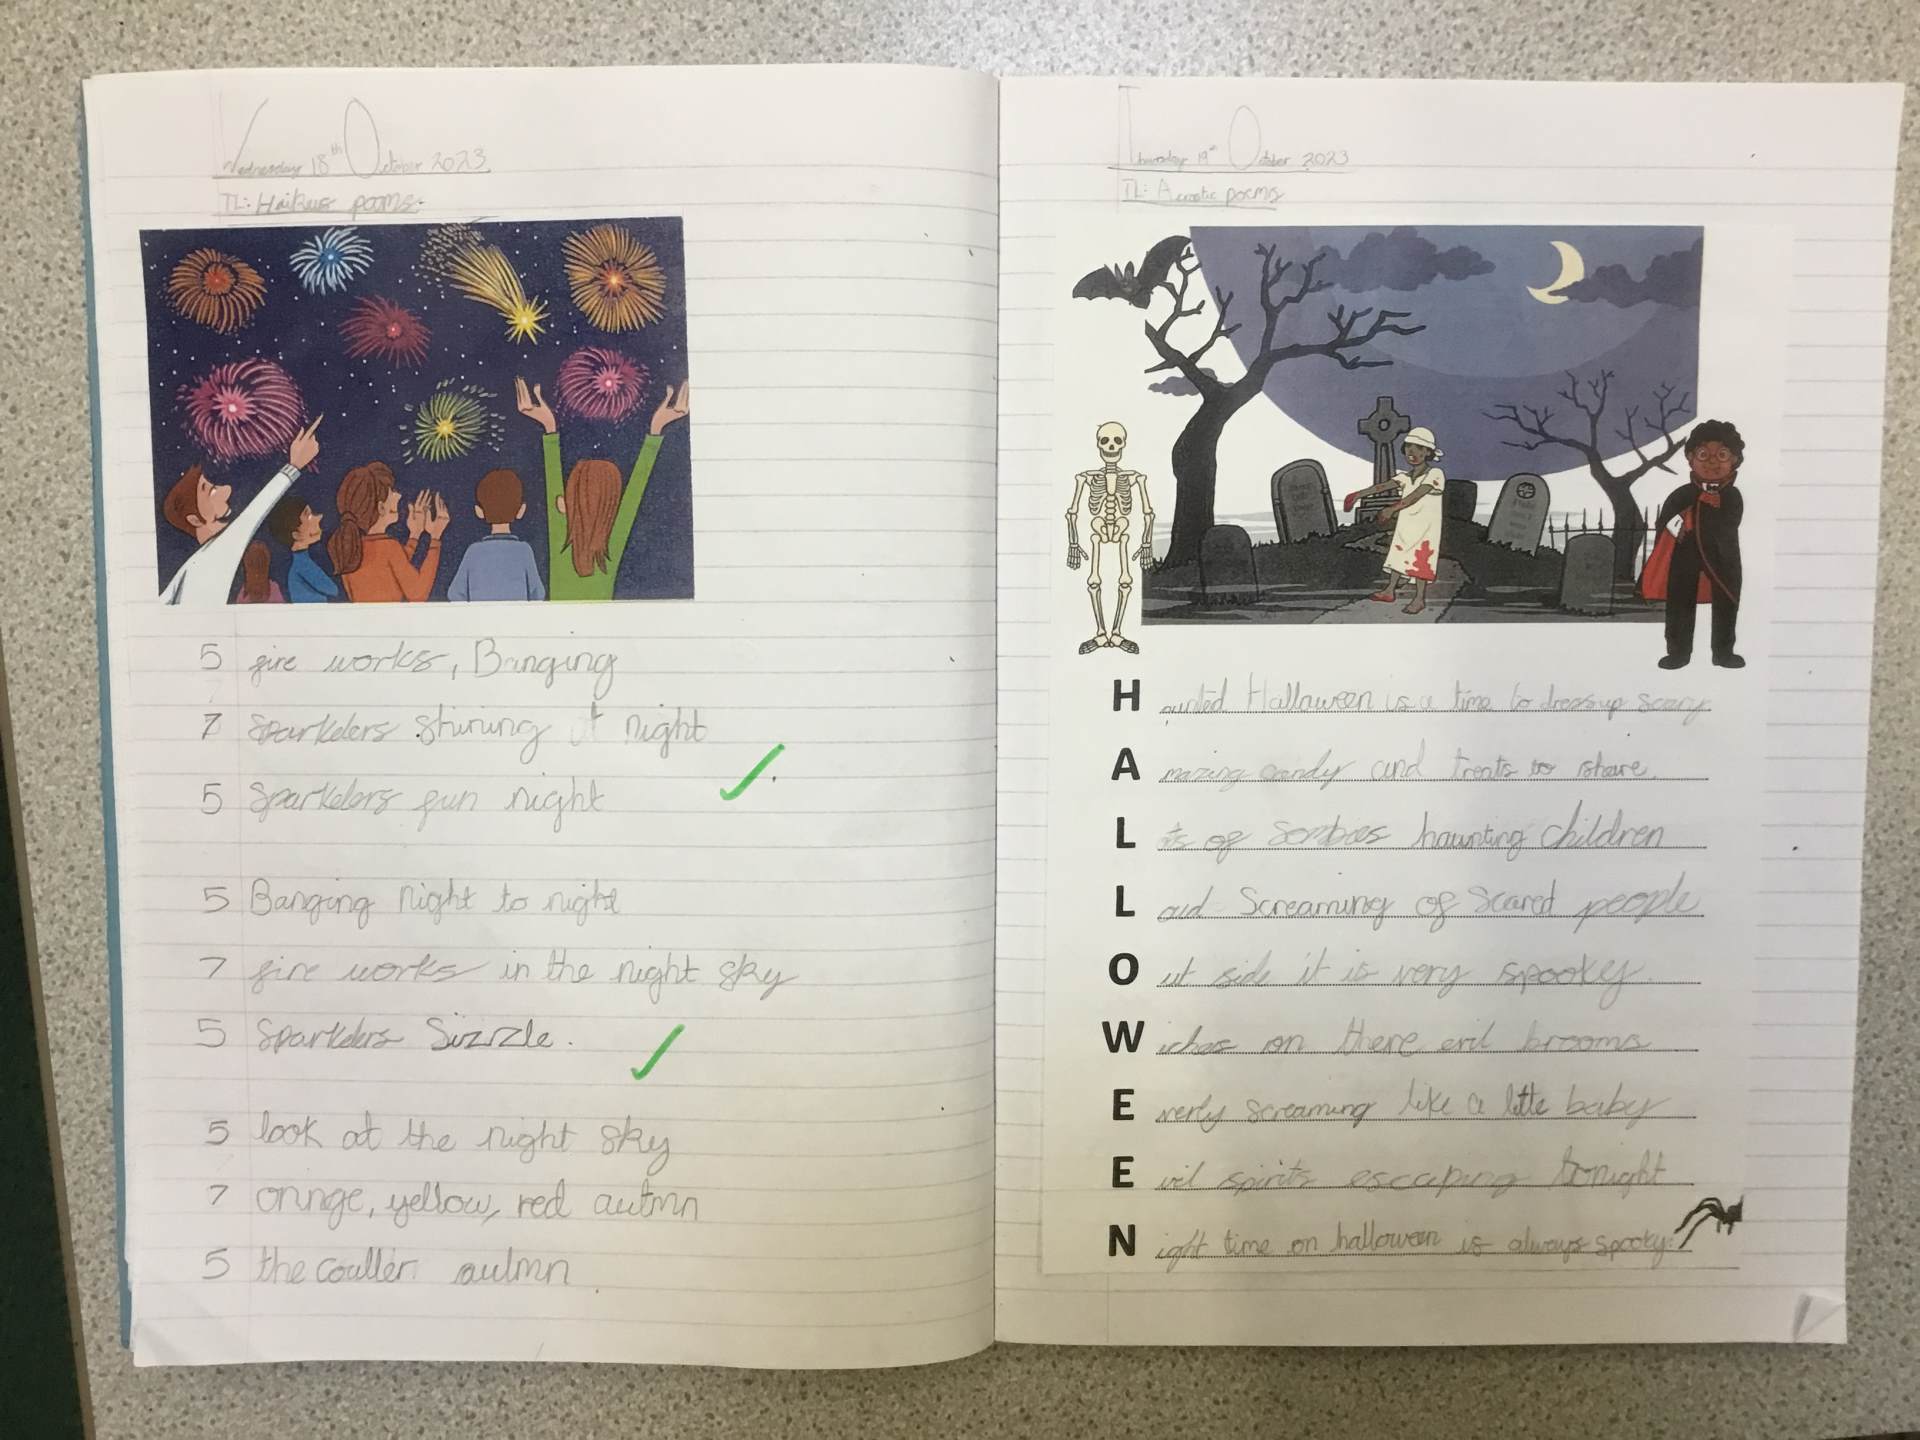 Wednesday 18th October 2023
TL: Haikus poems.
5 fire works, Banging
7 Sparkelers shining at night
5 Sparkelers fun night
5 Banging night to night
7 fire works in the night sky
5 Sparkelers Sizzle.
5 look at the night sky
7 orange, yellow, red autmn
5 the couller autmn
Thursday 19th October 2023
TL: Acrostic poems
Haunted Halloween is a time to dress up scary
Amazing candy and treats to share.
L of zombies haunting children
Loud Screaming of Scared people
Out side it is very spooky.
Wiches on there evil brooms
Everly screaming like a little baby
Evil spirits escaping tonight
Night time on halloween is always spooky.